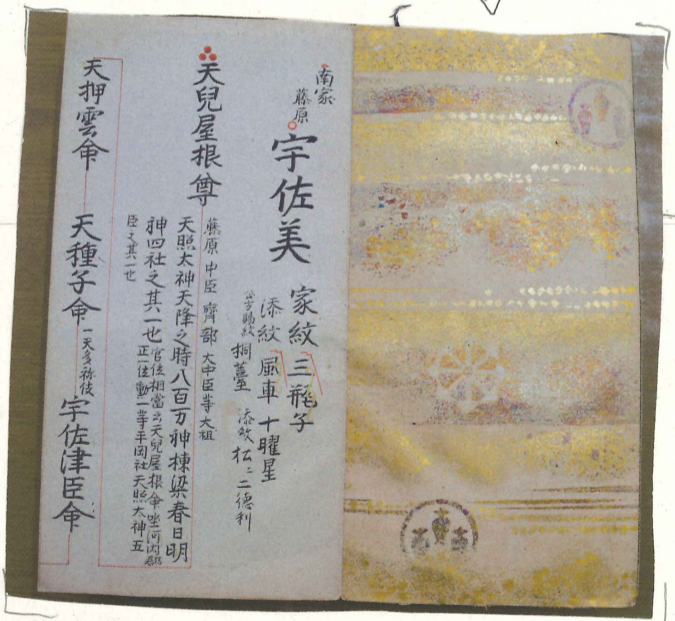 南家
藤原
宇佐美
家紋 三瓶子
添紋 風車 十曜星
替賜紋 桐薹 添紋 松ニ二德利
天兒屋根尊
藤原 中臣 齊部 大中臣等大祖
天照太神天降之時八百万神棟梁春日明
神四社之其一也
官位相當云天兒屋根命坐河内
正一位勳一等平国社天照太神五
臣之其一也
天押雲命
天種子命
一天多祢伎
宇佐津臣命